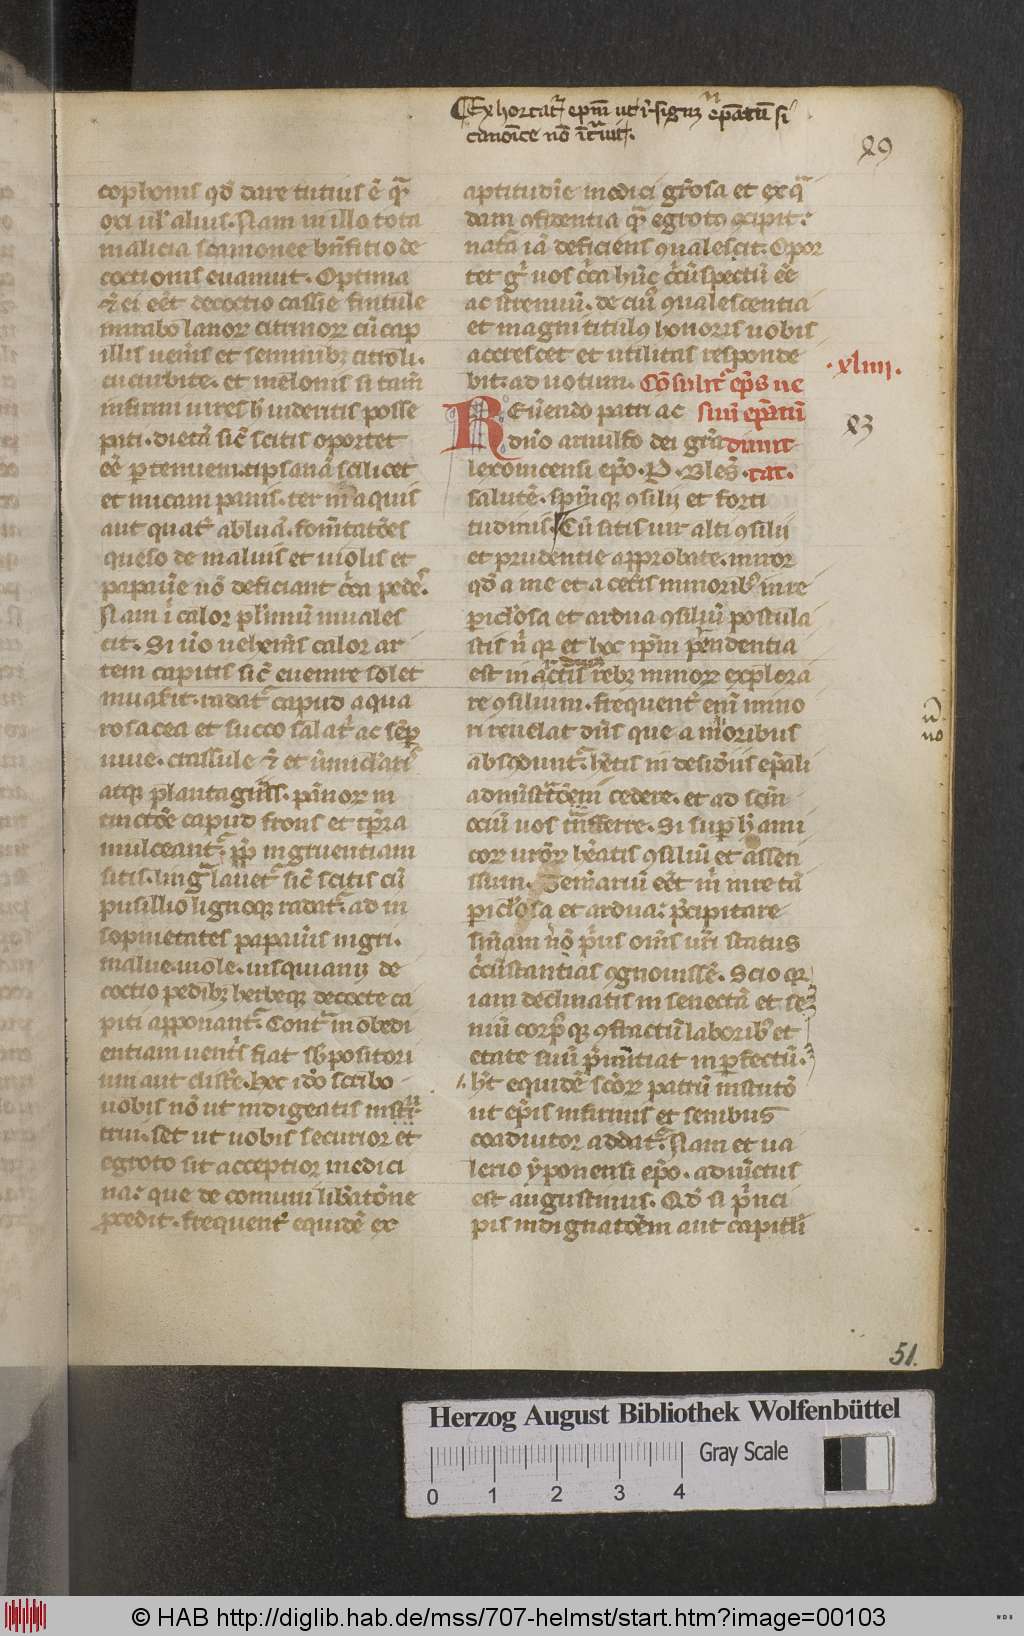 Exhortat᷑ ep̅m ut i̅signʒ n̅ ep̅atum si
canonice no̅ i̅t᷑uit.
89
cophonis qd̅ dare tutius e̅ q᷑
oxi ul̕ alius. Nam in illo tota
malicia scamonee bn̅fitio de
coctionis euanuit. Optima
⁊ ei eet̅ decoctio cassie fistule
mirabolanoꝝ citrinoꝝ cu̅ cap
illis uen̅is et seminibꝫ citroli.
cucurbite. et melonis si tam̅
infirmi uires h̅ uidentis posse
piti. dieta̅ sic̅ scitis oportet
ee̅ ꝑtenuem. tipsana̅ scilicet
et micam panis. ter ul̕ aquis
aut quat̕ ablua̅. fom̅tato̅es
queso de maluis et uiolis et
papau̅e no̅ deficiant c̕ca pede̕.
Nam i̅ calor pl̕imu̅ inuales
cit. Si u̅o uehem̅s calor ar
tem capitis sic̅ euenire solet
inuas̕it. radat᷑ capud aqua
rosacea et succo salat̕ ac se̅ꝑ
uiue. crassule
atqꝫ plantaginis̅. pa̅noꝝ in
tincto̅e capud frons et tp̅ra
mulceant᷑. ꝓp̅ ingruentiam
sitis. ling᷑ lauet᷑ sic̅ scitis cu̅
pusillio lignoqꝫ radat᷑. ad in
sopnietates papau̅is nigri.
malue. uiole. iusquianij de
coctio pedibꝫ herbeqꝫ decocte ca
piti apponant᷑. Cont᷑ inobedi
entiam uent̕s fiat sb̅positori
um aut clist̕e. Hec id̅o scribo
uobis no̅ ut indigeatis
set ut uobis securior et
egroto sit acceptior medici
na: que de comuni lib̅ato̅ne
ꝓcedit. frequent̕ equide̅ ex
aptitudi̅e medici gr̅osa et ex q᷑
dam ꝯfidentia q᷑ egrotꝰ ꝯcipit.
nat᷑a ia̅ deficiens ꝯualescit. Opor
tet g̕ uos c̕ca hu̅c c̕cu̅spectu̅ ee̅
ac strenuu̅. de cuiꝰ ꝯualescentia
et magni titulꝰ honoris uobis
accrescet et utilitas responde
bit. ad uotum. Co̅sulit᷑ ep̅s ne
.xliiii.
Reu̅endo patri ac suu̅ ep̅atu̅
83
dn̅o arnulfo dei gr̅a dimit
lexouicensi ep̅o. P. Bles̅. tat.
salute̅. sp̅m̅qꝫ ꝯsilij et forti
tudinis. Cu̅ sitis uir alti ꝯsilii
et prudentie approbate. miror
qd̅ a me et a cet̕is minoribꝰ in re
ꝑiclosa et ardua ꝯsiliu̅ postula
stis n̅ qꝫ et hoc ip̅m prudentia
est in rebꝫ minoꝝ explora
re ꝯsilium. frequent̕ eni̅ mino
ri reuelat dn̅s que a maioribus
absꝯdunt᷑. h̅etis in desid̅iis ep̅ali
adminst᷑to̅em cedere. et ad sc̅m
ociu̅ uos t᷑nsferre. Si sup h̅ ami
coꝝ ur̅oꝝ h̅eatis ꝯsiliu̅ et assen
sum. Temerariu̅ eet̅ m̕ in re ta̅
ꝑiclosa et ardua: p̅cipitare
sn̅iam no̅ p̕us om̅s ur̅i status
c̕cu̅stantias ꝯgnouisse̅. Scio qꝫ
iam declinatis in senecta̅ et se
niu̅ corpꝰqꝫ ꝯfractu̅ laboribꝰ et
etate suu̅ p̅nu̅tiat inperfectu̅.
h̅t equide̅ sc̅oꝝ patru̅ institu̅o
ut ep̅is infirmis et senibus
coadiutor addat᷑. Nam et ua
lerio yponensi ep̅o. adiu̅ctus
est augustinus. Qd̅ si p̕nci
pis indignato̅em aut capitli̅
n̅.
no
51.
Herzog August Bibliothek Wolfenbüttel
Gray Scale
0 1 2 3 4
© HAB http://diglib.hab.de/mss/707-helmst/start.htm?image=00103